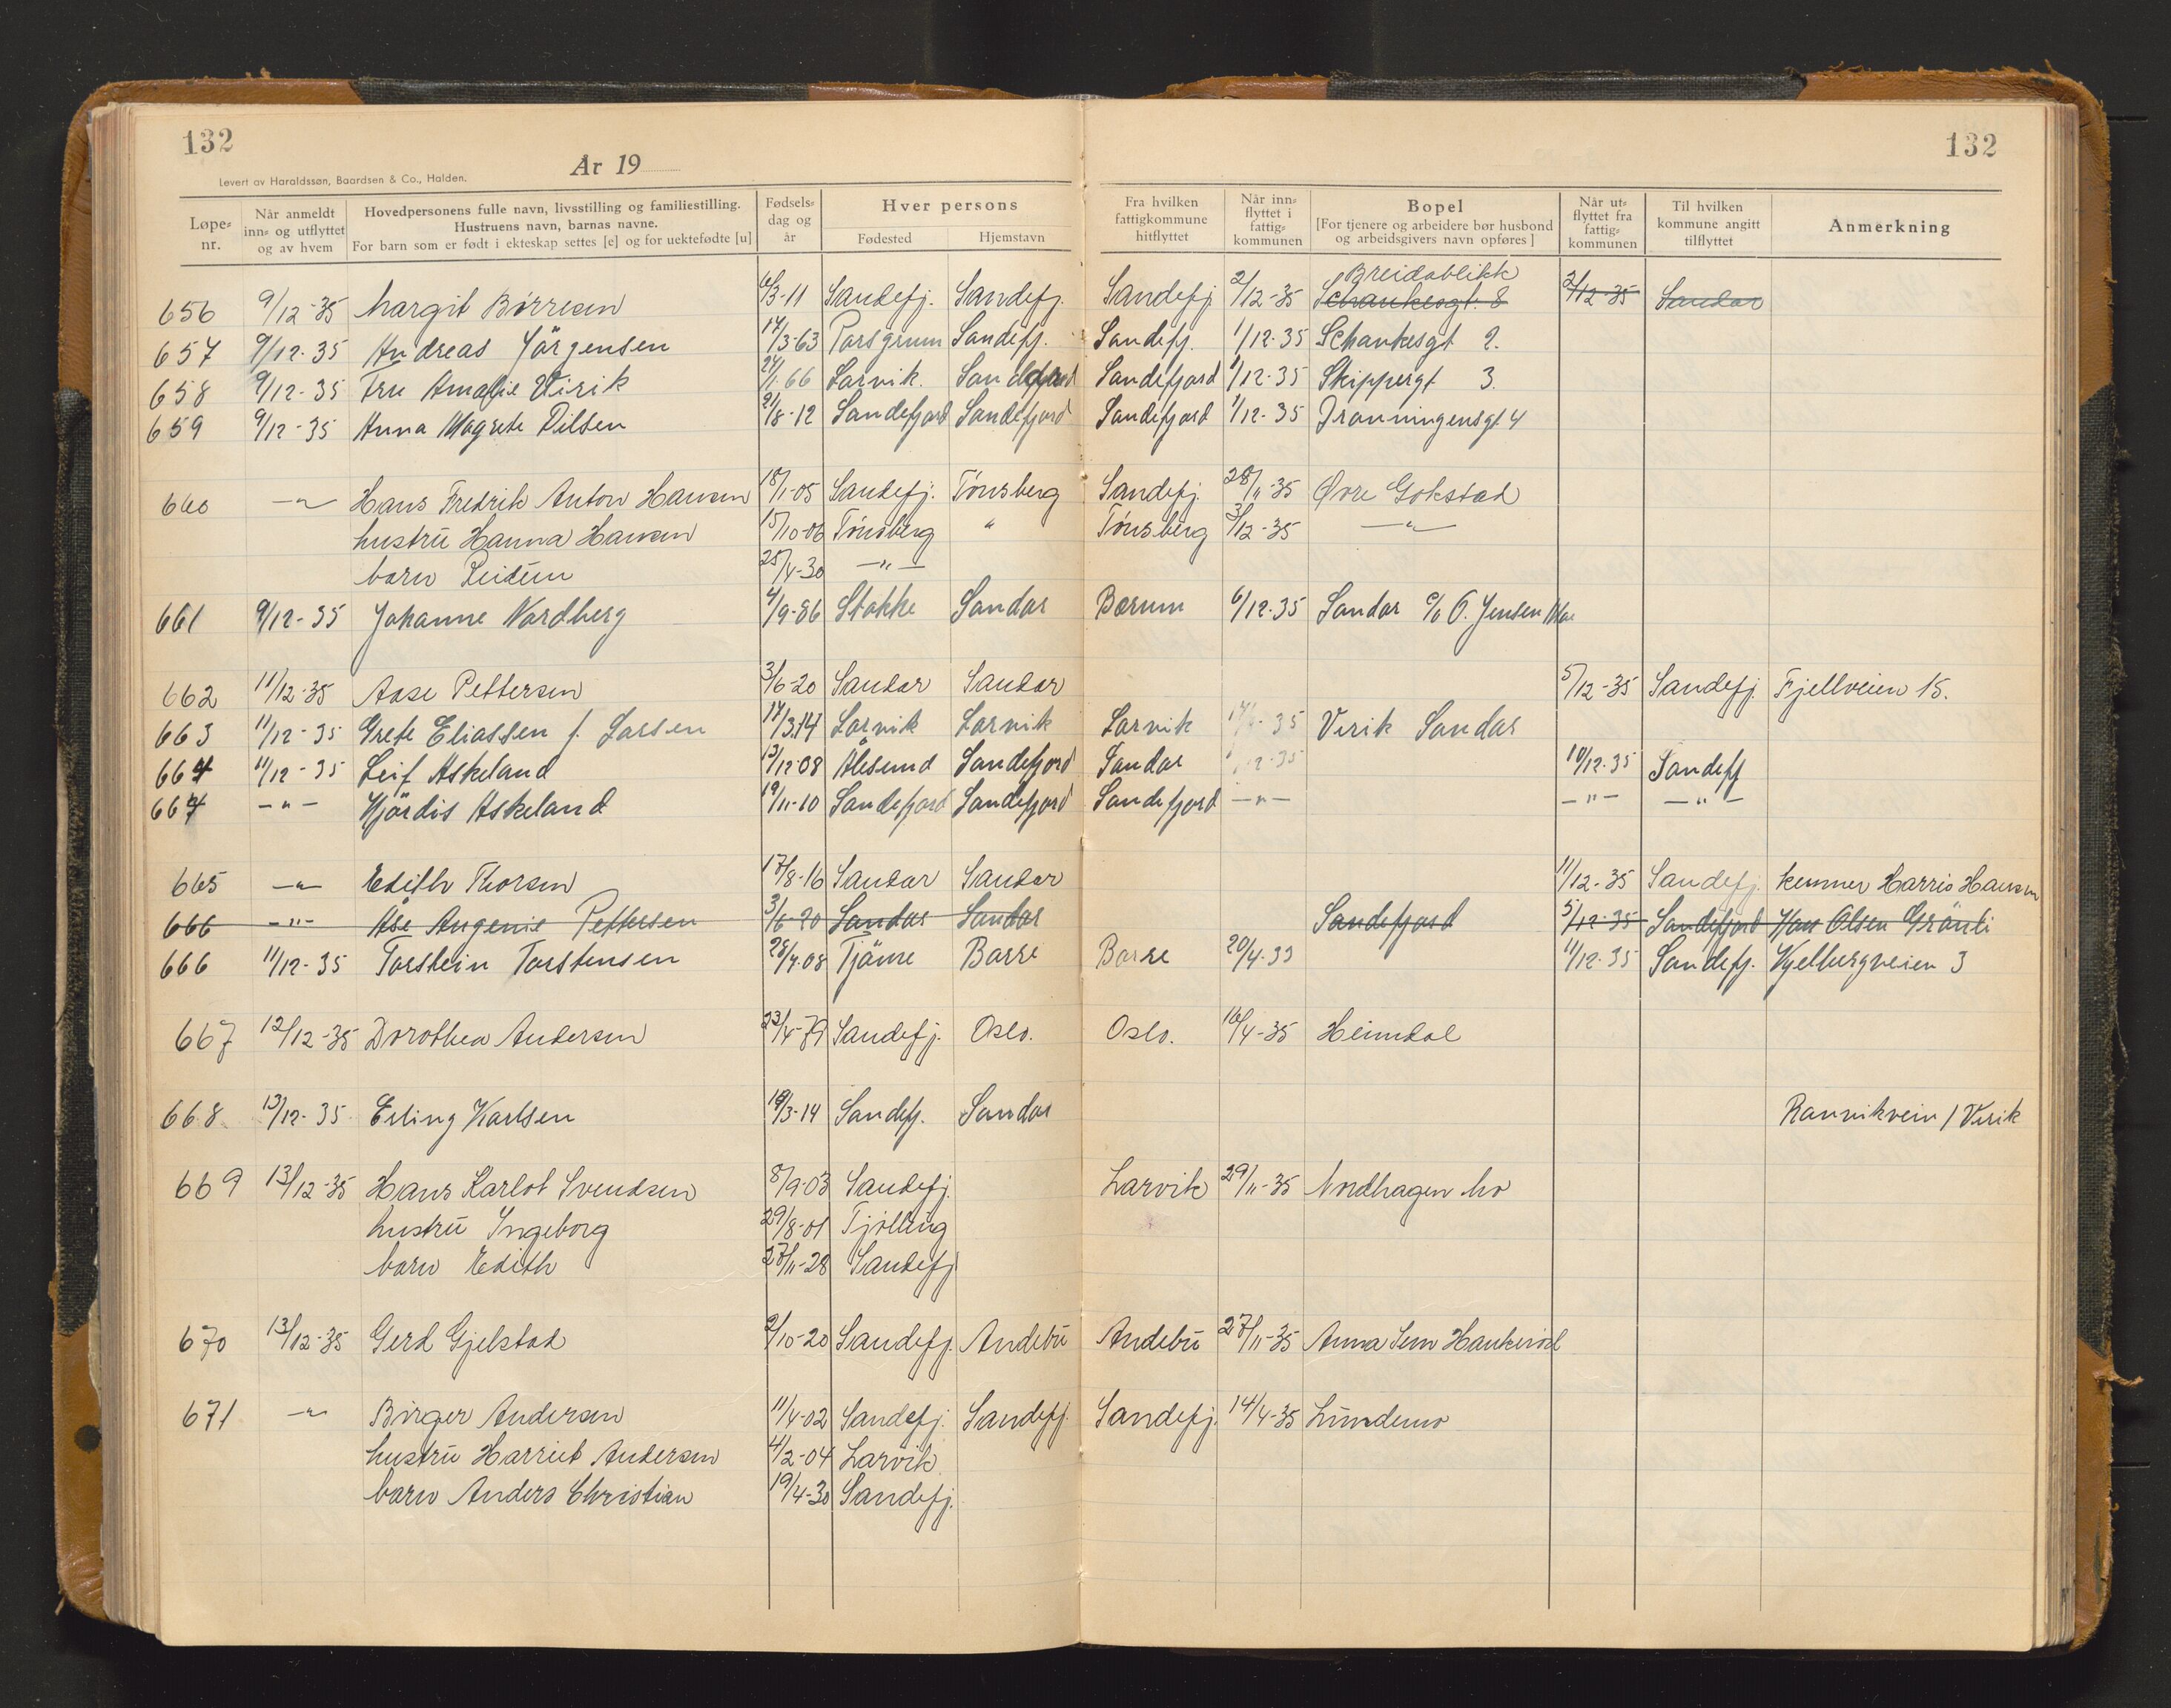 132
132
År 19
Levert av Haraldssøn, Baardsen & Co., Halden.
Løpe-nr. Når anmeldt inn- og utflyttet og av hvem Hovedpersonens fulle navn, livsstilling og familiestilling. Hustruens navn, barnas navne. For barn som er født i ekteskap settes [e] og for uektefødte [u] Fødsels-dag og år Hver persons Fødested Hjemstavn Fra hvilken fattigkommune hitflyttet Når inn-flyttet i fattig-kommunen Bopel [For tjenere og arbeidere bør husbond og arbeidsgivers navn opføres] Når ut-flyttet fra fattig-kommunen Til hvilken kommune angitt tilflyttet Anmerkning
Breidablikk
656 9/12-35 Margit Börresen 6/3-11 Sandefj. Sandefj. Sandefj 2/12-35 Schankesgt. 8 2/12-35 Sandar
657 9/12-35 Andreas Jörgensen 17/3-63 Porsgrunn Sandefj. Sandefj. 1/12-35 Schankesgt 2.
658 9/12-35 Fru Amalie Virik 24/1-66 Larvik. Sandefjord Sandefjord 1/12-35 Skippergt 3.
659 9/12-35 Anna Magrete Pilsen 21/8-12 Sandefjord Sandefjord Sandefjord 1/12-35 Dronningensgt 4
660 -"- Hans Fredrik Anton Hansen 18/1-05 Sandefj. Tönsberg Sandefj. 28/11-35 Øvre Gokstad
hustru Hanna Hansen 15/10-06 Tönsberg " Tönsberg 3/12-35 -"-
barn Reidun 25/4-30 -"-
661 9/12-35 Johanne Nordberg 4/9-86 Stokke Sandar Bærum 6/12-35 Sandar c/o O. Jensen
662 11/12-35 Aase Pettersen 3/6-20 Sandar Sandar 5/12-35 Sandefj. Fjellveien 15.
663 11/12-35 Grete Eliassen f. Larsen 17/3-14 Larvik Larvik Larvik 35 Virik Sandar
664 11/12-35 Leif Askeland 13/12-08 Ålesund Sandefjord Sandar 12-35 10/12-35 Sandefj
664 -"- Hjördis Askeland 19/11-10 Sandefjord Sandefjord Sandefjord -"- -"- -"-
665 -"- Edith Thorsen 17/8-16 Sandar Sandar 11/12-35 Sandefj. kemner Harris Hansen
666 -"- Åse Angenie Pettersen 3/6-20 Sandar Sandar Sandefjord 5/12-35 Sandefjord Olsen Grönli
666 11/12-35 Torstein Torstensen 28/7-08 Tjöme Borre Borre 20/4-33 11/12-35 Sandefj. Kjelbergveien 3
667 12/12-35 Dorothea Andersen 23/4-79 Sandefj. Oslo. Oslo. 16/4-35 Heimdal
668 13/12-35 Erling Karlsen 19/3-14 Sandefj. Sandar Ranvikvein / Virik
669 13/12-35 Hans Karlot Svendsen 8/9-03 Sandefj. Larvik 29/11-35 Nordhagen
hustru Ingeborg 29/8-01 Tjölling
barn Edith 27/11-28 Sandefj
670 13/12-35 Gerd Gjelstad 9/10-20 Sandefj. Andebu Andebu 27/11-35 Anna Sem Haukeröd
671 -"- Birger Andersen 11/4-02 Sandefj. Sandefj. Sandefj. 14/4-35 Lundemo
hustru Harriet Andersen 4/2-04 Larvik
barn Anders Christian 19/4-30 Sandefj.